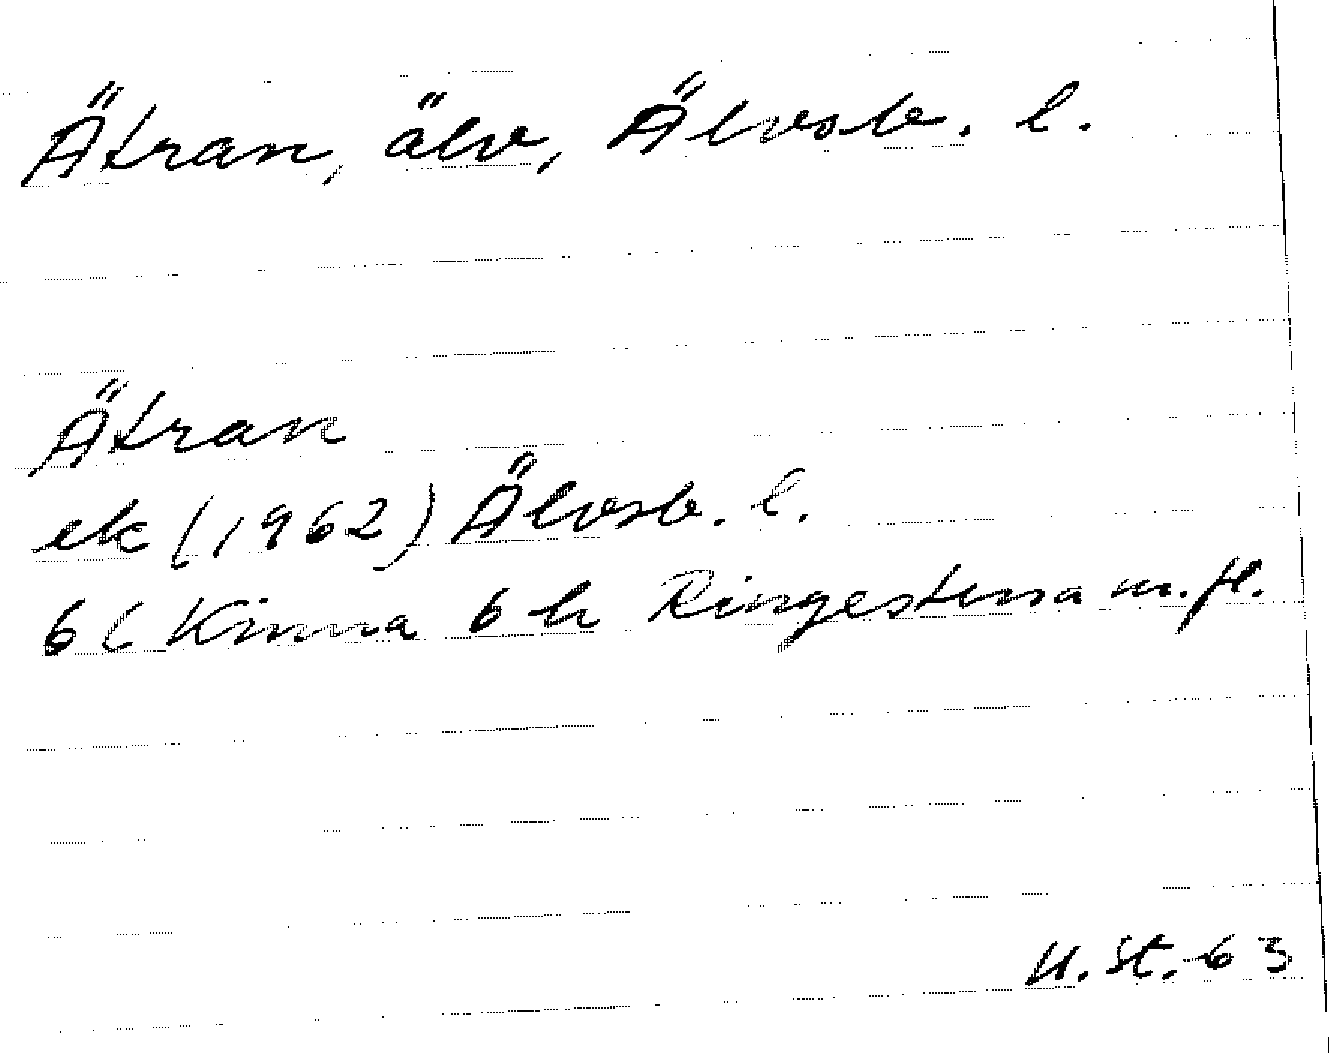 Ätran, älv, Älvsb. l.
Ätran
ek (1962) Älvsb. l.
6 C Kinna 6 h Ringestena m.fl.
H. St. -63